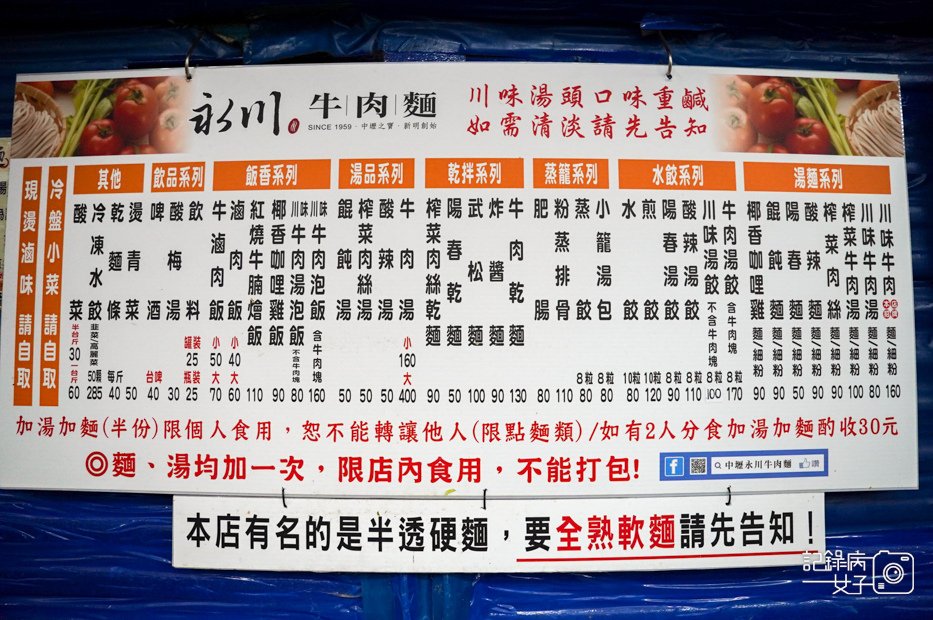 永川 牛肉麵
SINCE 1959．中壢之寶．新明創始
川味湯頭口味重鹹
如需清淡請先告知
現燙滷味 請自取
冷盤小菜 請自取
其他
酸菜 半台斤 30 一台斤 60
冷凍水餃 韭菜/高麗菜 50顆 285
乾麵條 每斤 40
燙青菜 50
飲品系列
啤酒 台啤 40
酸梅湯 30
飲料 罐裝 25 瓶裝 25
飯香系列
牛滷肉飯 小 50 大 70
滷肉飯 小 40 大 60
紅燒牛腩燴飯 110
椰香咖哩雞飯 90
川味牛肉湯泡飯 不含牛肉塊 80
川味牛肉泡飯 含牛肉塊 160
湯品系列
餛飩湯 50
榨菜肉絲湯 50
酸辣湯 50
牛肉湯 小 160 大 400
乾拌系列
榨菜肉絲乾麵 90
陽春乾麵 50
武松麵 100
炸醬麵 90
牛肉乾麵 130
蒸籠系列
肥腸 80
粉蒸排骨 110
蒸餃 8粒 80
小籠湯包 8粒 80
水餃系列
水餃 10粒 80
煎餃 10粒 120
陽春湯餃 8粒 90
酸辣湯餃 8粒 110
川味湯餃 不含牛肉塊 8粒 100
牛肉湯餃 含牛肉塊 8粒 170
湯麵系列
椰香咖哩雞麵/細粉 90
餛飩麵/細粉 90
陽春麵/細粉 50
酸辣麵/細粉 80
榨菜肉絲麵/細粉 90
榨菜牛肉湯麵/細粉 100
川味牛肉湯麵/細粉 80
川味牛肉麵/細粉 160
加湯加麵(半份)限個人食用，恕不能轉讓他人(限點麵類)/如有2人分食加湯加麵酌收30元
◎麵、湯均加一次，限店內食用，不能打包!
f 中壢永川牛肉麵 讚
本店有名的是半透硬麵，要全熟軟麵請先告知！
記錄病女子